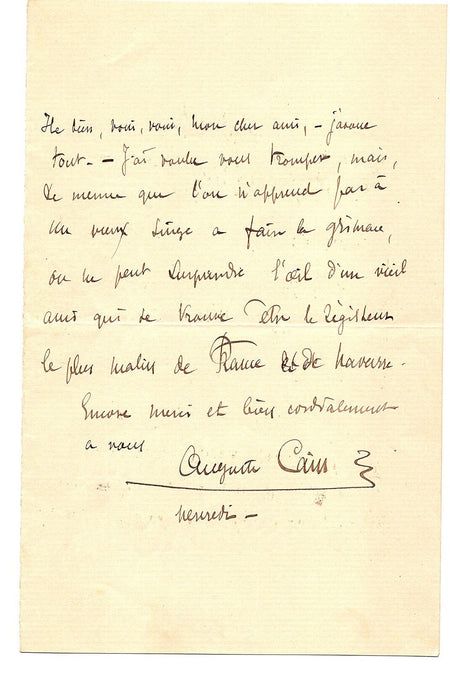 He bien, oui, oui, mon cher ami, – j'avoue
tout. – J'ai voulu vous tromper, mais,
de meme que l'on n'apprend pas à
un vieux singe a faire la grimace,
on ne peut surprendre l'œil d'un vieil
ami qui se trouve etre le régisseur
le plus malin de France & de Navarre.
Encore merci et bien cordialement
a vous
Auguste Cain